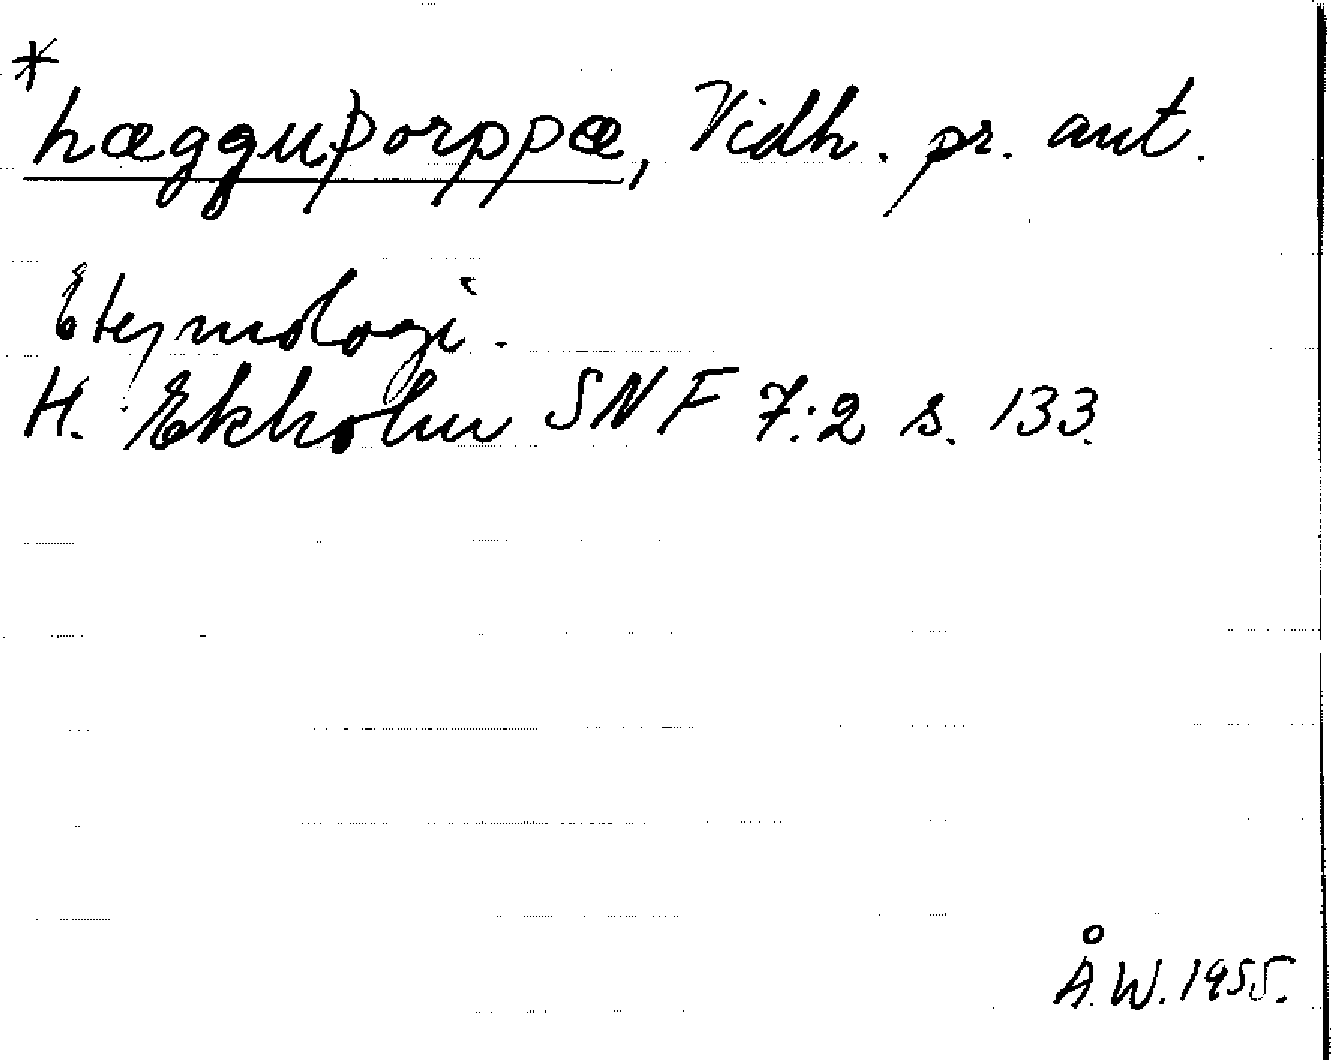 *
hægguþorppæ, Vidh. pr. ant.
Etymologi.
H. Ekholm SNF 7:2 s. 133.
Å.W. 1955.